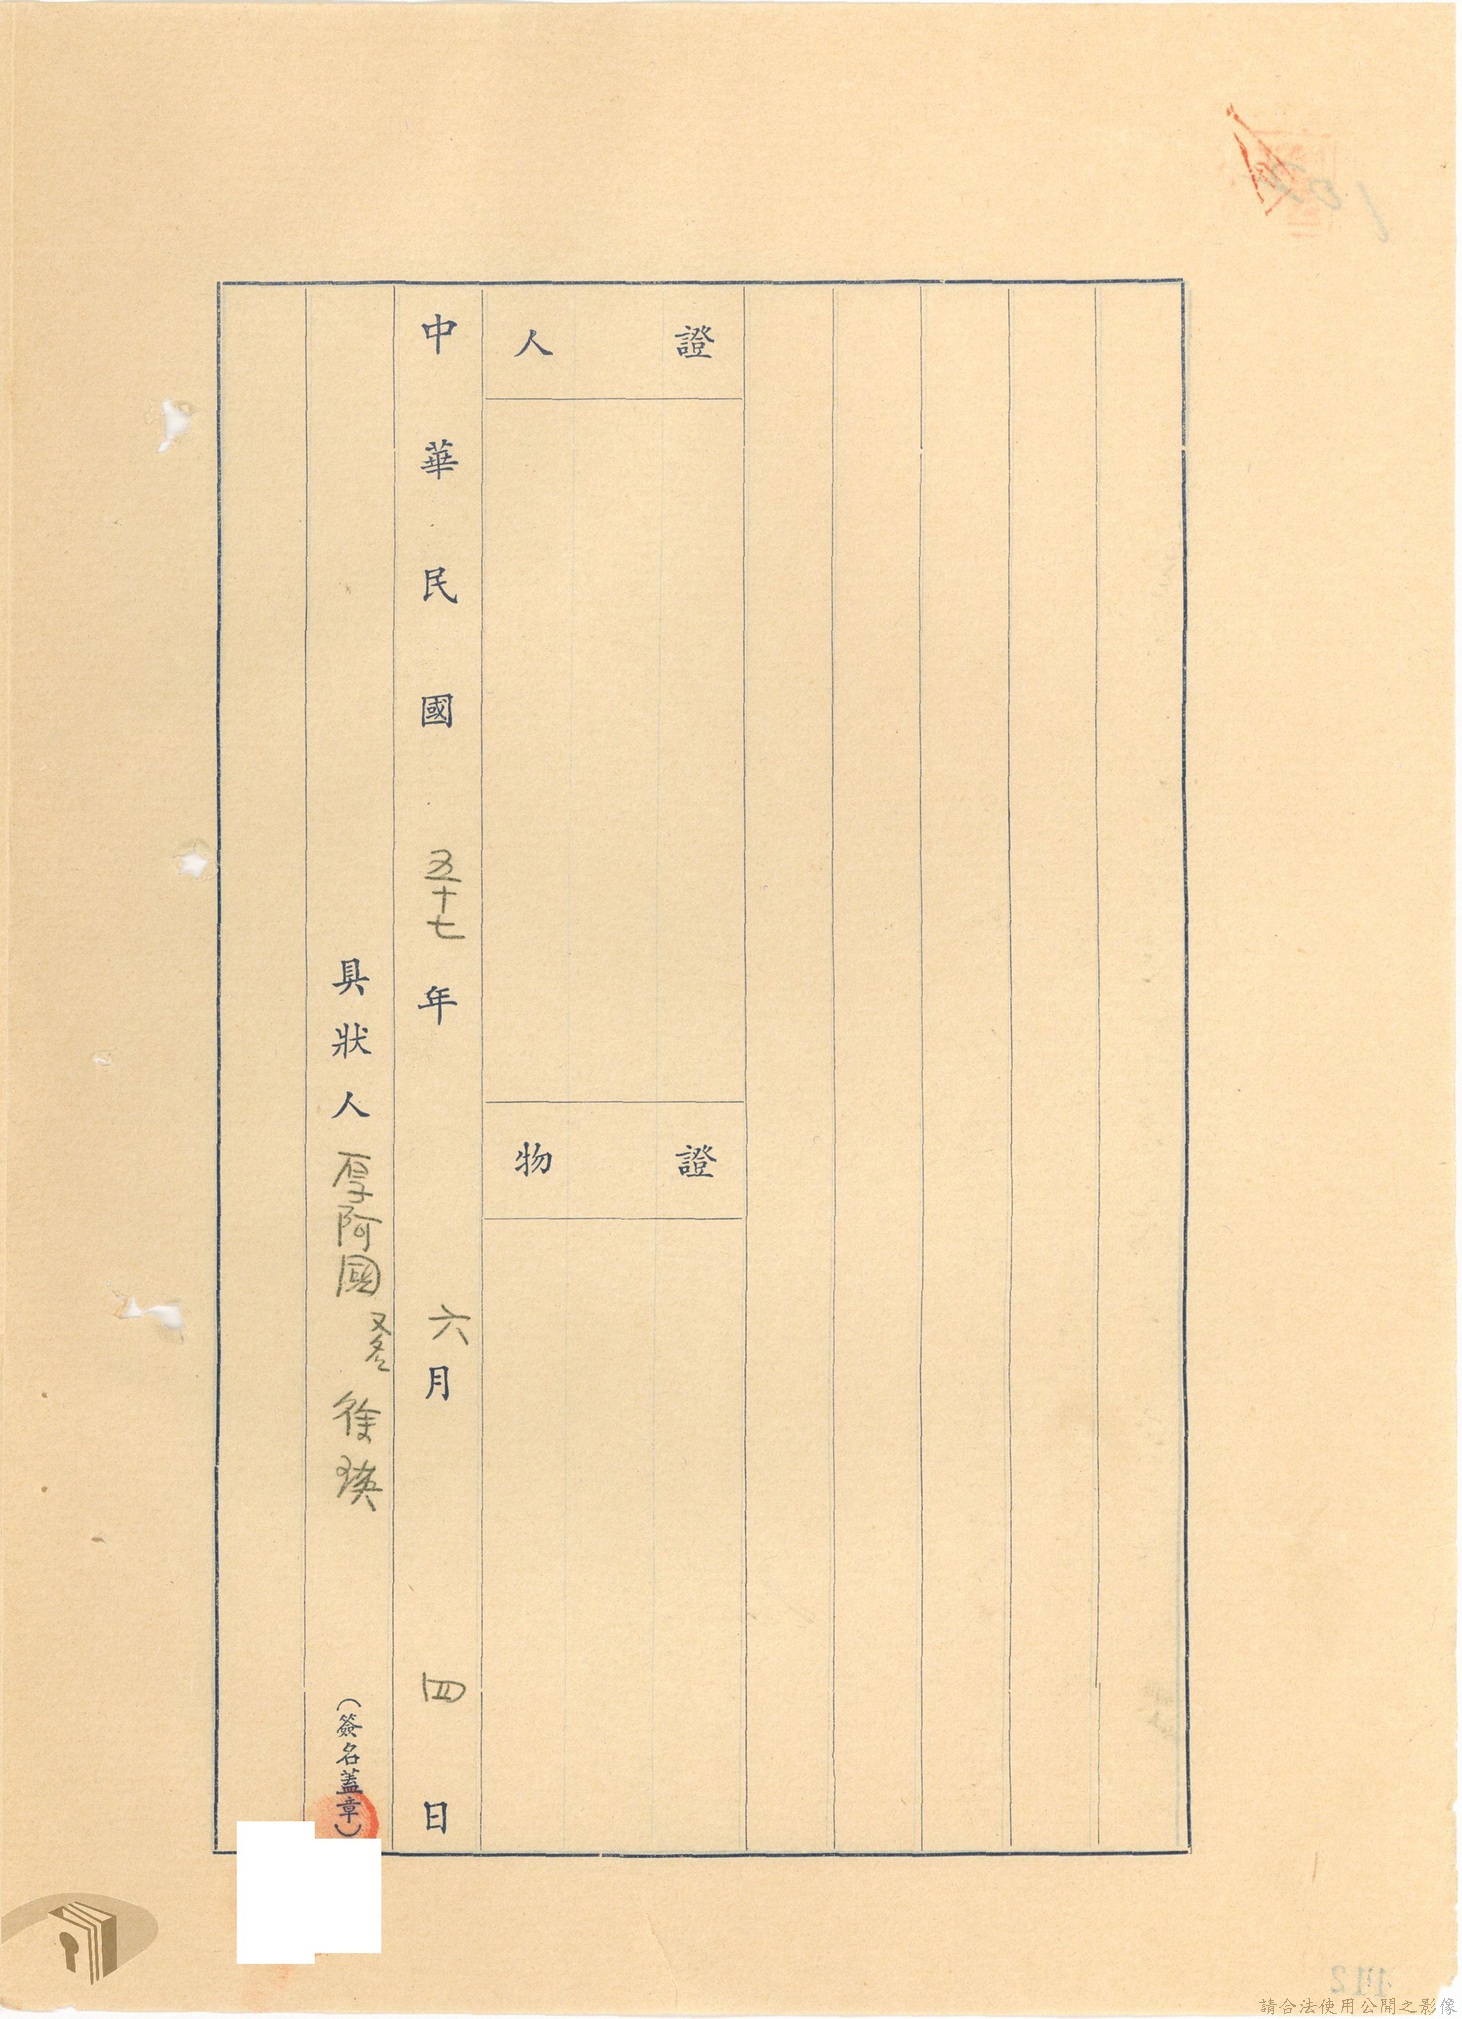 證人
證物
中華民國五十七年六月四日
具狀人厚阿國 徐瑛(簽名蓋章)
112
請合法使用公開之影像